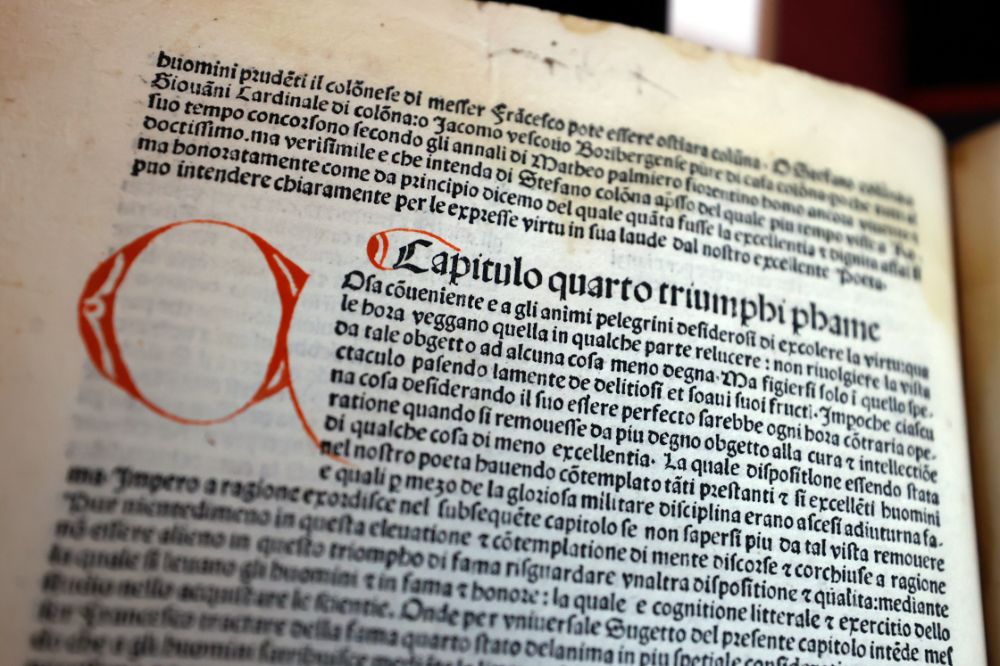 huomini prudēti il colōnese di messer Frācesco pote essere ostiara colūna. O
Giouāni Cardinale di colōna: o Jacomo vescouo Boribergense pure di casa colōna
suo tempo concorsono secondo gli annali di Matheo palmiero fiorentino homo ancora
doctissimo. ma verisimile e che intenda di Stefano colōna apſſo del quale piu tempo visse
ma honoratamente come da principio dicemo del quale quāta fusse la excellentia ⁊ dignita assai si
puo intendere chiaramente per le expresse virtu in sua laude dal nostro excellente Poeta.
Capitulo quarto triumphi phame
Q
Osa cōueniente e a gli animi pelegrini desiderosi di excolere la virtu: qua
le hora veggano quella in qualche parte relucere: non riuolgiere la vista
da tale obgetto ad alcuna cosa meno degna. Ma figiersi solo i quello spe-
ctaculo pasendo lamente de delitiosi et soaui suoi fructi. Impoche ciascu
na cosa desiderando il suo essere perfecto sarebbe ogni hora cōtraria ope-
ratione quando si remouesse da piu degno obgetto alla cura ⁊ intellectiōe
di qualche cosa di meno excellentia. La quale dispositione essendo stata
nel nostro poeta hauendo cōtemplato tāti prestanti ⁊ si excellēti huomini
e quali ꝑ mezo de la gloriosa militare disciplina erano ascesi adiuturna fa-
ma. Impero a ragione exordisce nel subsequēte capitolo se non sapersi piu da tal vista remouere
Pur nientedimeno in questa eleuatione ⁊ cōtemplatione di mente discorse ⁊ corchiuse a ragione
nō essere alieno in questo triompho di fama risguardare vnaltra dispositione ⁊ qualita: mediante
la quale si leuano gli huomini ⁊ in fama ⁊ honore: la quale e cognitione litterale ⁊ exercitio dello
studio nello acquistare le scientie. Onde per vniuersale Sugetto del presente capitolo intēde mes
ser Francesco tractare della fama quarto stato delanima in piu spetiale
che a gli huomini